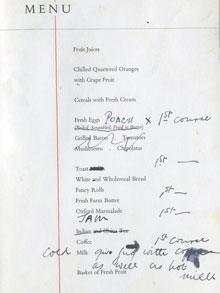 MENU
Fruit Juices
Chilled Quartered Oranges
with Grape Fruit
Cereals with Fresh Cream
Fresh Eggs POACH x 1st Course
(Boiled, Scrambled, Fried in Butter)
Grilled Bacon Tomatoes
Mushrooms Chipolatas
Toast
White and Wholemeal Bread
Fancy Rolls 1st —
Fresh Farm Butter
Oxford Marmalade 1st —
JAM
Indian and China Tea
Coffee 1st Course
Cold Milk with
as well as hot
Basket of Fresh Fruit milk